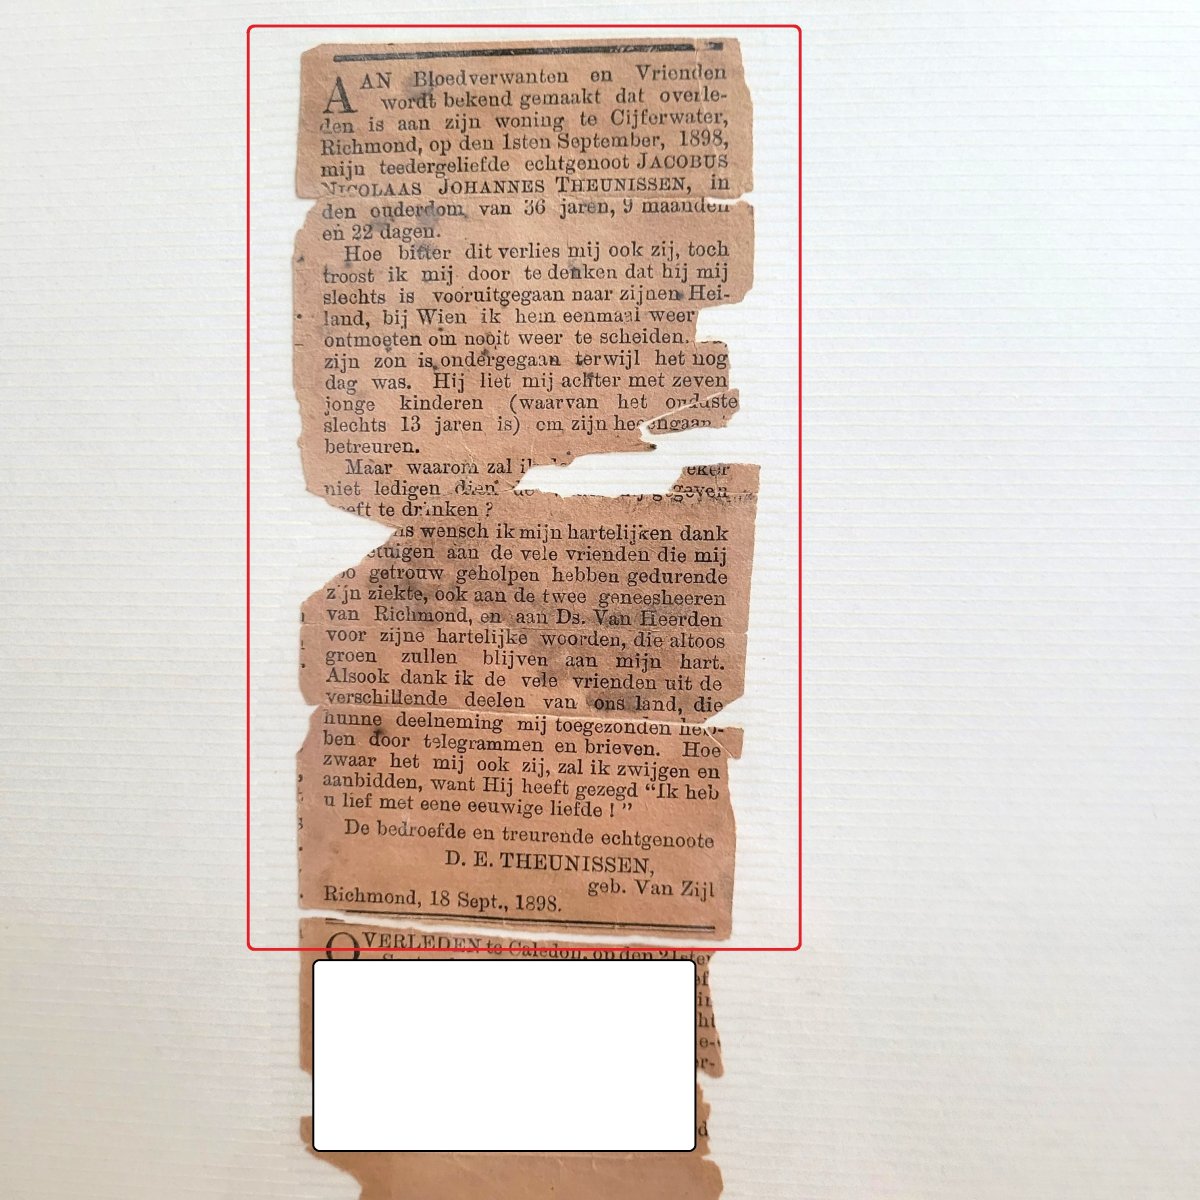 AAN Bloedverwanten en Vrienden
wordt bekend gemaakt dat overle-
den is aan zijn woning te Cijferwater,
Richmond, op den 1sten September, 1898,
mijn teedergeliefde echtgenoot JACOBUS
NICOLAAS JOHANNES THEUNISSEN, in
den ouderdom van 36 jaren, 9 maanden
en 22 dagen.
Hoe bitter dit verlies mij ook zij, toch
troost ik mij door te denken dat hij mij
slechts is vooruitgegaan naar zijnen Hei-
land, bij Wien ik hem eenmaal weer
ontmoeten om nooit weer te scheiden.
zijn zon is ondergegaan terwijl het nog
dag was. Hij liet mij achter met zeven
jonge kinderen (waarvan het oudste
slechts 13 jaren is) om zijn heengaan
betreuren.
Maar waarom zal
niet ledigen gegeven
te drinken ?
wensch ik mijn hartelijken dank
aan de vele vrienden die mij
getrouw geholpen hebben gedurende
zijn ziekte, ook aan de twee geneesheeren
van Richmond, en aan Ds. Van Heerden
voor zijne hartelijke woorden, die altoos
groen zullen blijven aan mijn hart.
Alsook dank ik de vele vrienden uit de
verschillende deelen van ons land, die
hunne deelneming mij toegezonden heb-
ben door telegrammen en brieven. Hoe
zwaar het mij ook zij, zal ik zwijgen en
aanbidden, want Hij heeft gezegd “Ik heb
u lief met eene eeuwige liefde ! ”
De bedroefde en treurende echtgenoote
D. E. THEUNISSEN,
geb. Van Zijl
Richmond, 18 Sept., 1898.
OVERLEDEN te Caledon, op den 21ster